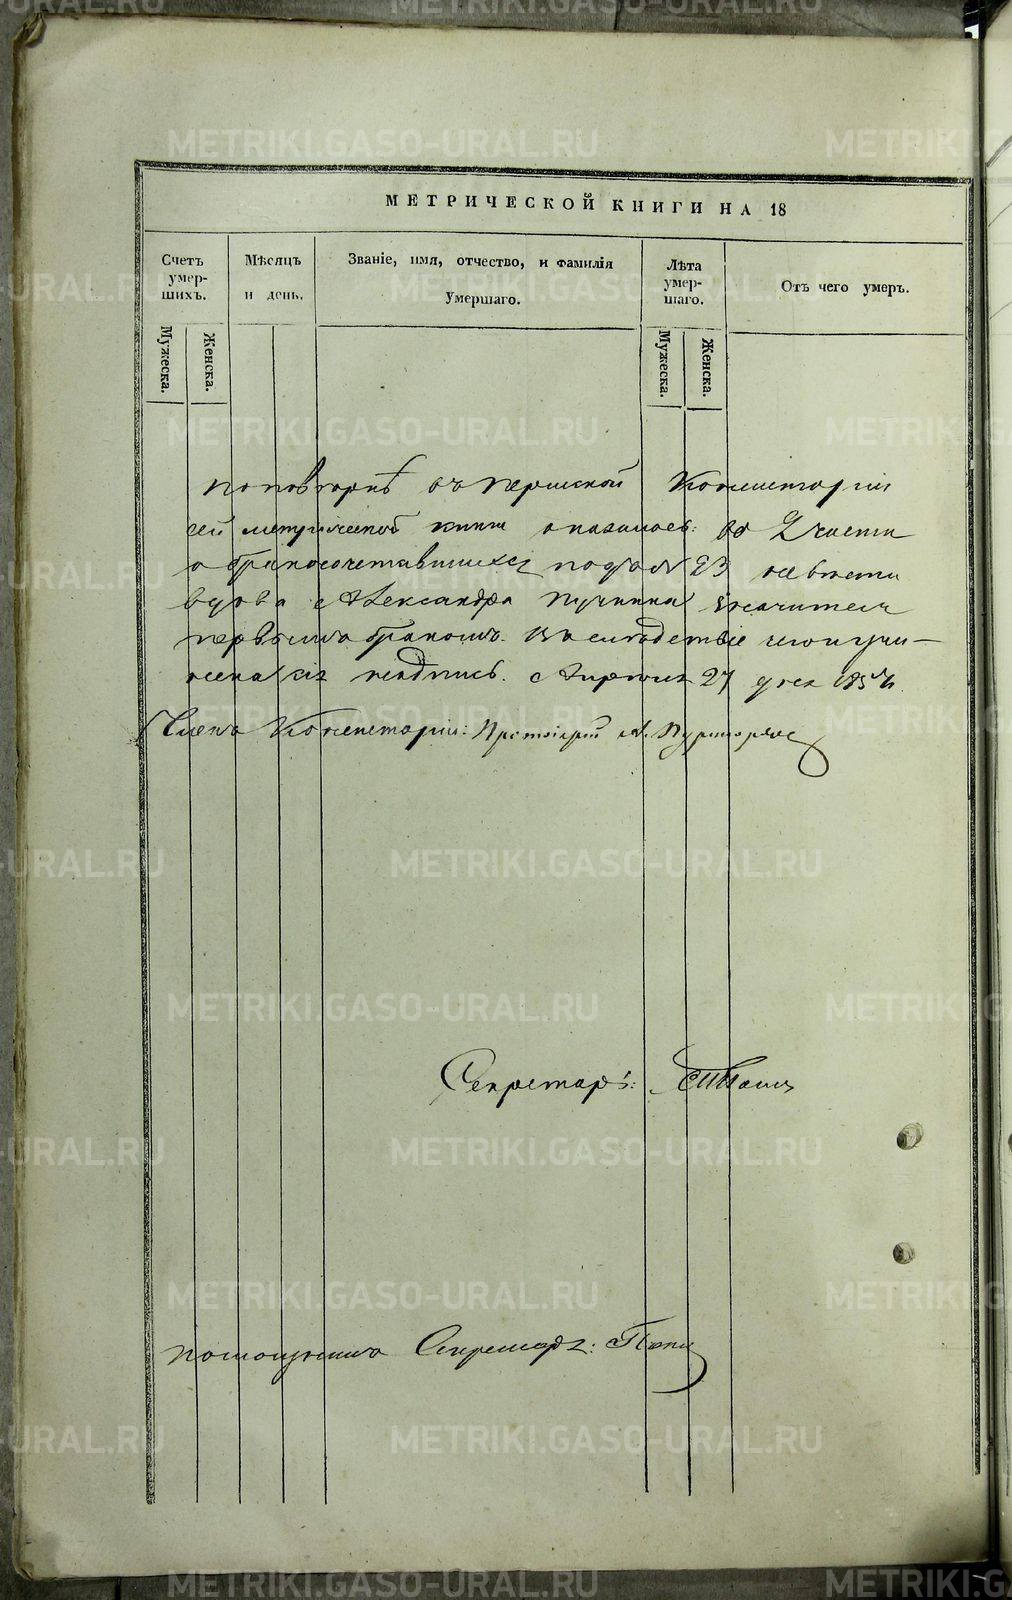 МЕТРИЧЕСКОЙ КНИГИ НА 18
Счетъ умер-шихъ.
Мѣсяцъ и день.
Званіе, имя, отчество, и фамилія Умершаго.
Лѣта умер-шаго.
Отъ чего умеръ.
Мужеска.
Женска.
Мужеска.
Женска.
По повѣркѣ въ Пермской Консисторіи
сей метрической книги оказалось: во 2 части
о бракосочетавшихся подъ № 23 невѣста
вдова Александра значится
первымъ бракомъ. Въ слѣдствіе чего и учи-
нена сія надпись. 27 дня
Членъ Консисторіи: Протоіерей
Секретарь:
Помощникъ Секретаря: Попов
METRIKI.GASO-URAL.RU